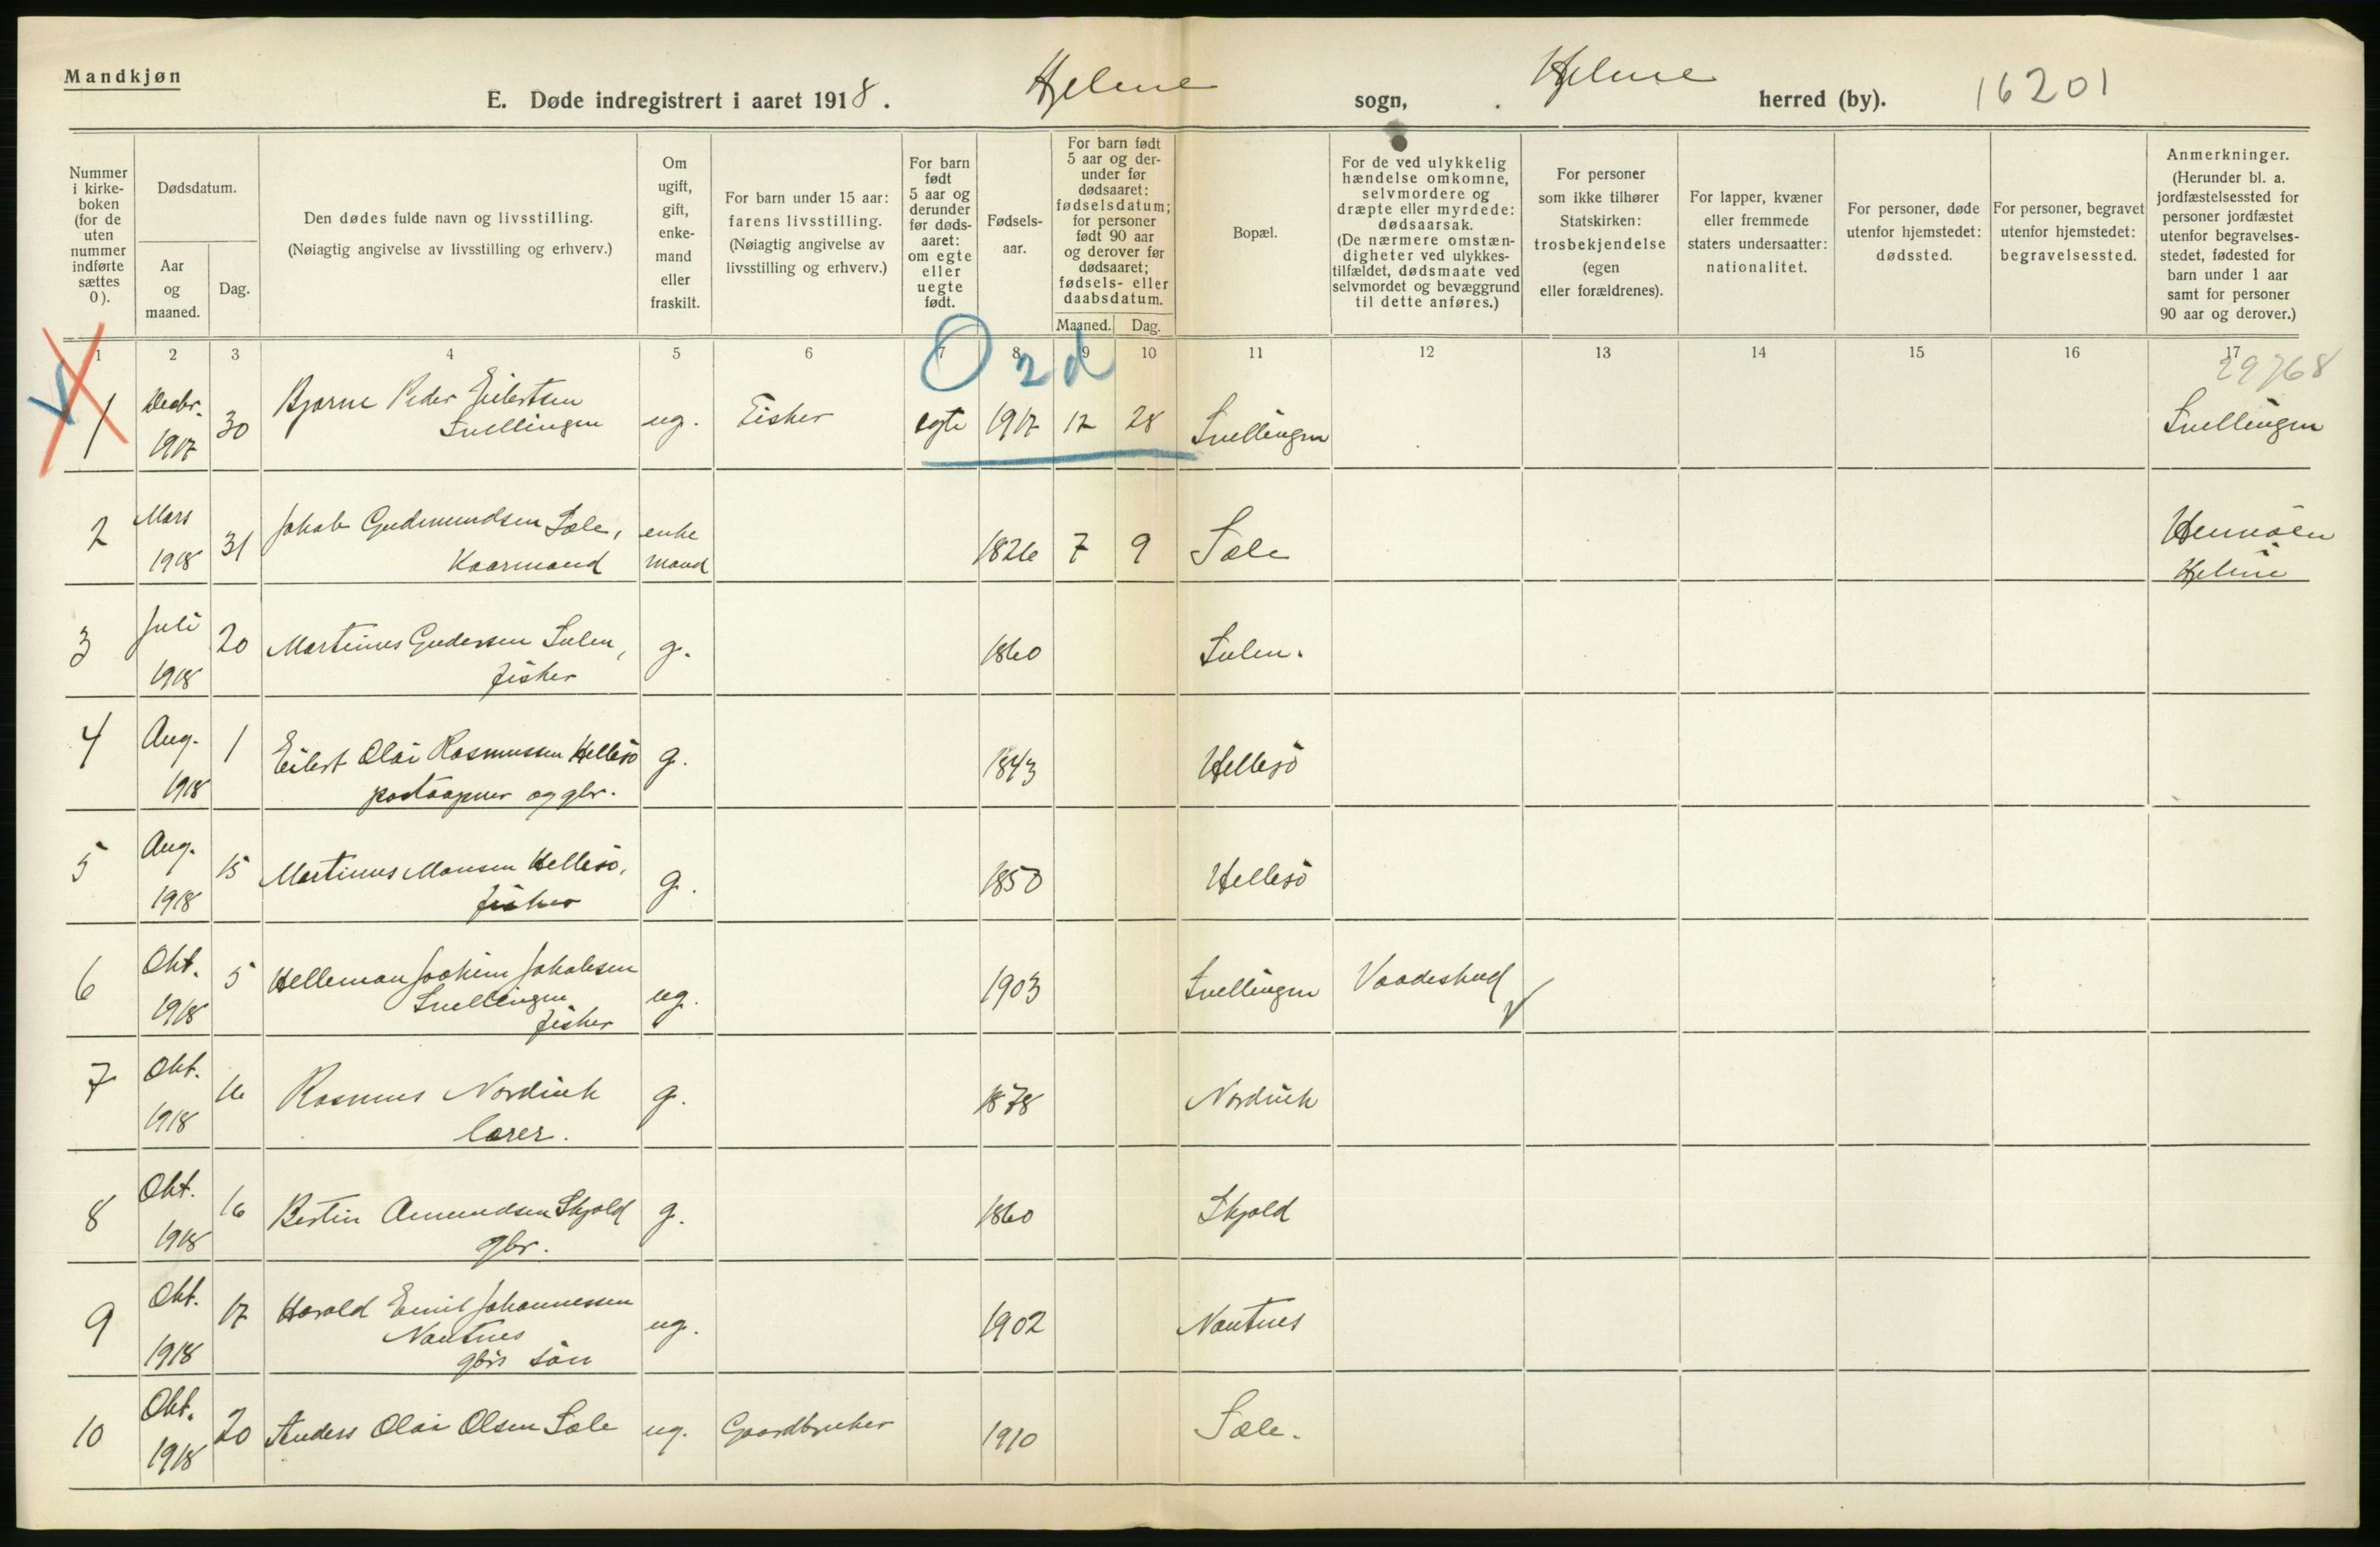 Mandkjøn
E. Døde indregistrert i aaret 1918. Hjelme sogn, Hjelme herred (by). 16201
Nummer i kirke-boken (for de uten nummer indførte sættes 0).
Dødsdatum.
Aar og maaned.
Dag.
Den dødes fulde navn og livsstilling.
(Nøiagtig angivelse av livsstilling og erhverv.)
Om ugift, gift, enke-mand eller fraskilt.
For barn under 15 aar: farens livsstilling.
(Nøiagtig angivelse av livsstilling og erhverv.)
For barn født 5 aar og derunder før døds-aaret: om egte eller uegte født.
Fødsels-aar.
For barn født 5 aar og der-under før dødsaaret: fødselsdatum; for personer født 90 aar og derover før dødsaaret; fødsels- eller daabsdatum.
Maaned. Dag.
Bopæl.
For de ved ulykkelig hændelse omkomne, selvmordere og dræpte eller myrdede: dødsaarsak.
(De nærmere omstæn-digheter ved ulykkes-tilfældet, dødsmaate ved selvmordet og bevæggrund til dette anføres.)
For personer som ikke tilhører Statskirken: trosbekjendelse (egen eller forældrenes).
For lapper, kvæner eller fremmede staters undersaatter: nationalitet.
For personer, døde utenfor hjemstedet: dødssted.
For personer, begravet utenfor hjemstedet: begravelsessted.
Anmerkninger.
(Herunder bl. a. jordfæstelsessted for personer jordfæstet utenfor begravelses-stedet, fødested for barn under 1 aar samt for personer 90 aar og derover.)
1 2 3 4 5 6 7 8 9 10 11 12 13 14 15 16 17
O 2 d
29768
1 Decbr. 1917 30 Bjarne Peder Eilertsen Svellingen ug. Fisker egte 1917 12 28 Svellingen Svellingen
2 Mars 1918 31 Jakob Gudmundsen Sæle, Kaarmand enke mand 1826 7 9 Sæle Hernøen Hjelme
3 Juli 1918 20 Martinus Gudersen Sulen, fisker g. 1860 Sulen.
4 Aug. 1918 1 Eilert Olai Rasmussen Hellesö postaapner og gbr. g. 1843 Hellesö
5 Aug. 1918 15 Martinus Monsen Hellesö, fisker g. 1850 Hellesö
6 Okt. 1918 5 Helleman Joakim Jakobsen Svellingen fisker ug. 1903 Svellingen Vaadeskud
7 Okt. 1918 16 Rasmus Nordvik lærer. g. 1878 Nordvik
8 Okt. 1918 16 Bertin Amundsen Skjold gbr. g. 1860 Skjold
9 Okt. 1918 17 Harald Emil Johannessen Nautnes gbrs sön ug. 1902 Nautnes
10 Okt. 1918 20 Anders Olai Olsen Sæle ug. Gaardbruker 1910 Sæle.